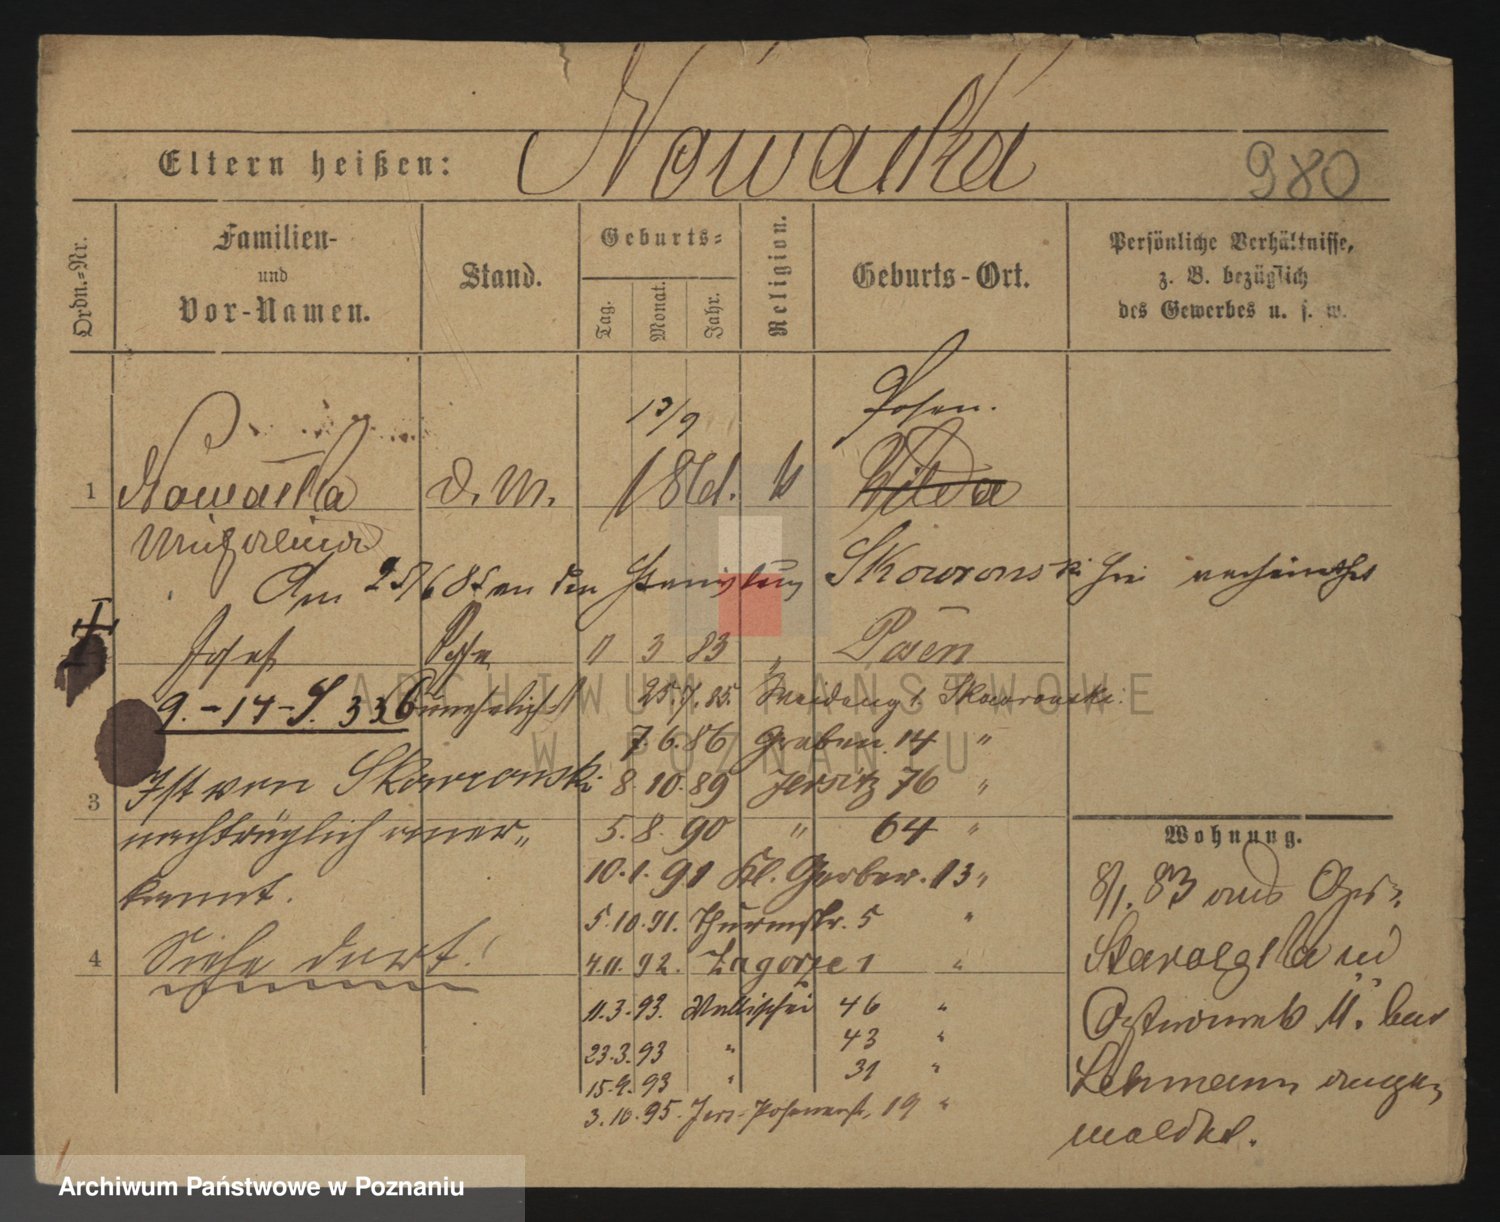 Nowacka
Eltern heißen:
980
Ordn.-Nr.
Familien-
und
Vor-Namen.
Stand.
Geburts-
Tag.
Monat.
Jahr.
Religion.
Geburts-Ort.
Persönliche Verhältnisse,
z. B. bezüglich
des Gewerbes u. s. w.
13/9
Posen.
1 Nowacka D. M. 1861. k Wilda
Michalina
Am 25/6 85 an den Stanislaus Skowronski hier verheirathet
Josef Sohn 11 3 83 " Posen
9.-14-S. 336 unehelich
25.7.85. Skowronski
7.6.86 Graben 14 "
3 Ist von Skowronski 8.10.89 Jersitz 76 "
nachträglich aner-
5.8.90 " 64 "
kannt.
10.1.91 Kl. Gerber. 13 "
5.10.91. Thurmstr. 5 "
4 Siehe dort!
4.11.92. Zagorze 1 "
11.3.93. Wallischei 46 "
23.3.93 " 43 "
15.9.93 " 31 "
3.10.95. Jers. Posenerstr. 19 "
Wohnung.
8/1. 83 aus
Starolenka in
Ostrowek 11. bei
Lehmann ange-
meldet.
ARCHIWUM PAŃSTWOWE
W POZNANIU
Archiwum Państwowe w Poznaniu